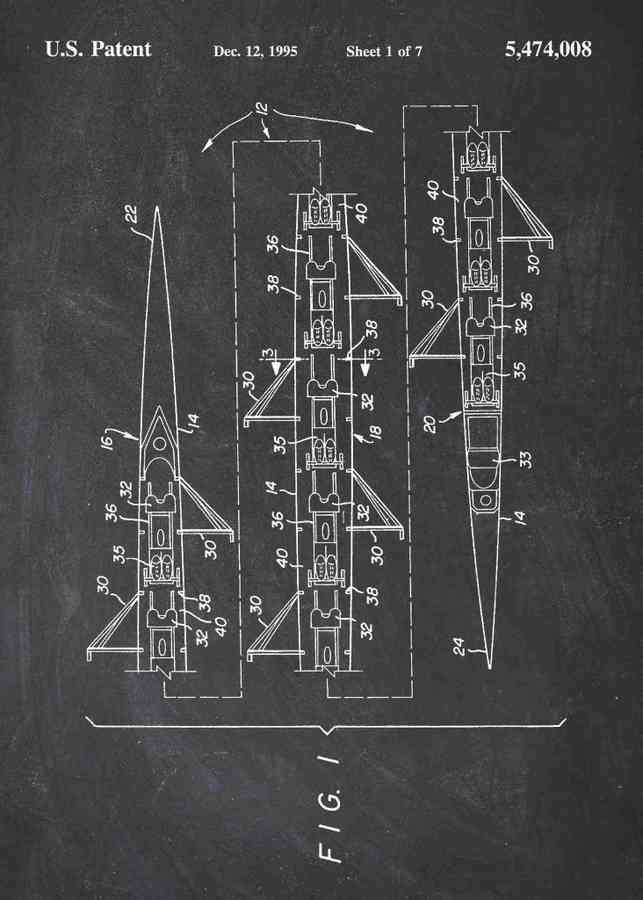 U.S. Patent Dec. 12, 1995 Sheet 1 of 7 5,474,008
12
22
16
14
32
36
35
30
30
38
40
32
40
36
38
38
3
3
30
32
35
18
14
32
36
30
40
38
30
32
40
38
30
30
36
32
35
20
33
14
24
FIG. 1